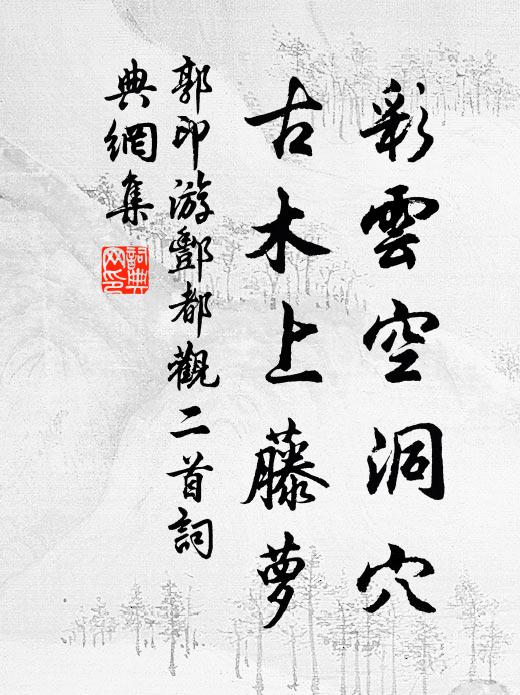 彩雲空洞穴
古木上藤夢
郭印游酆都觀二首詞
典網集
詞典網印